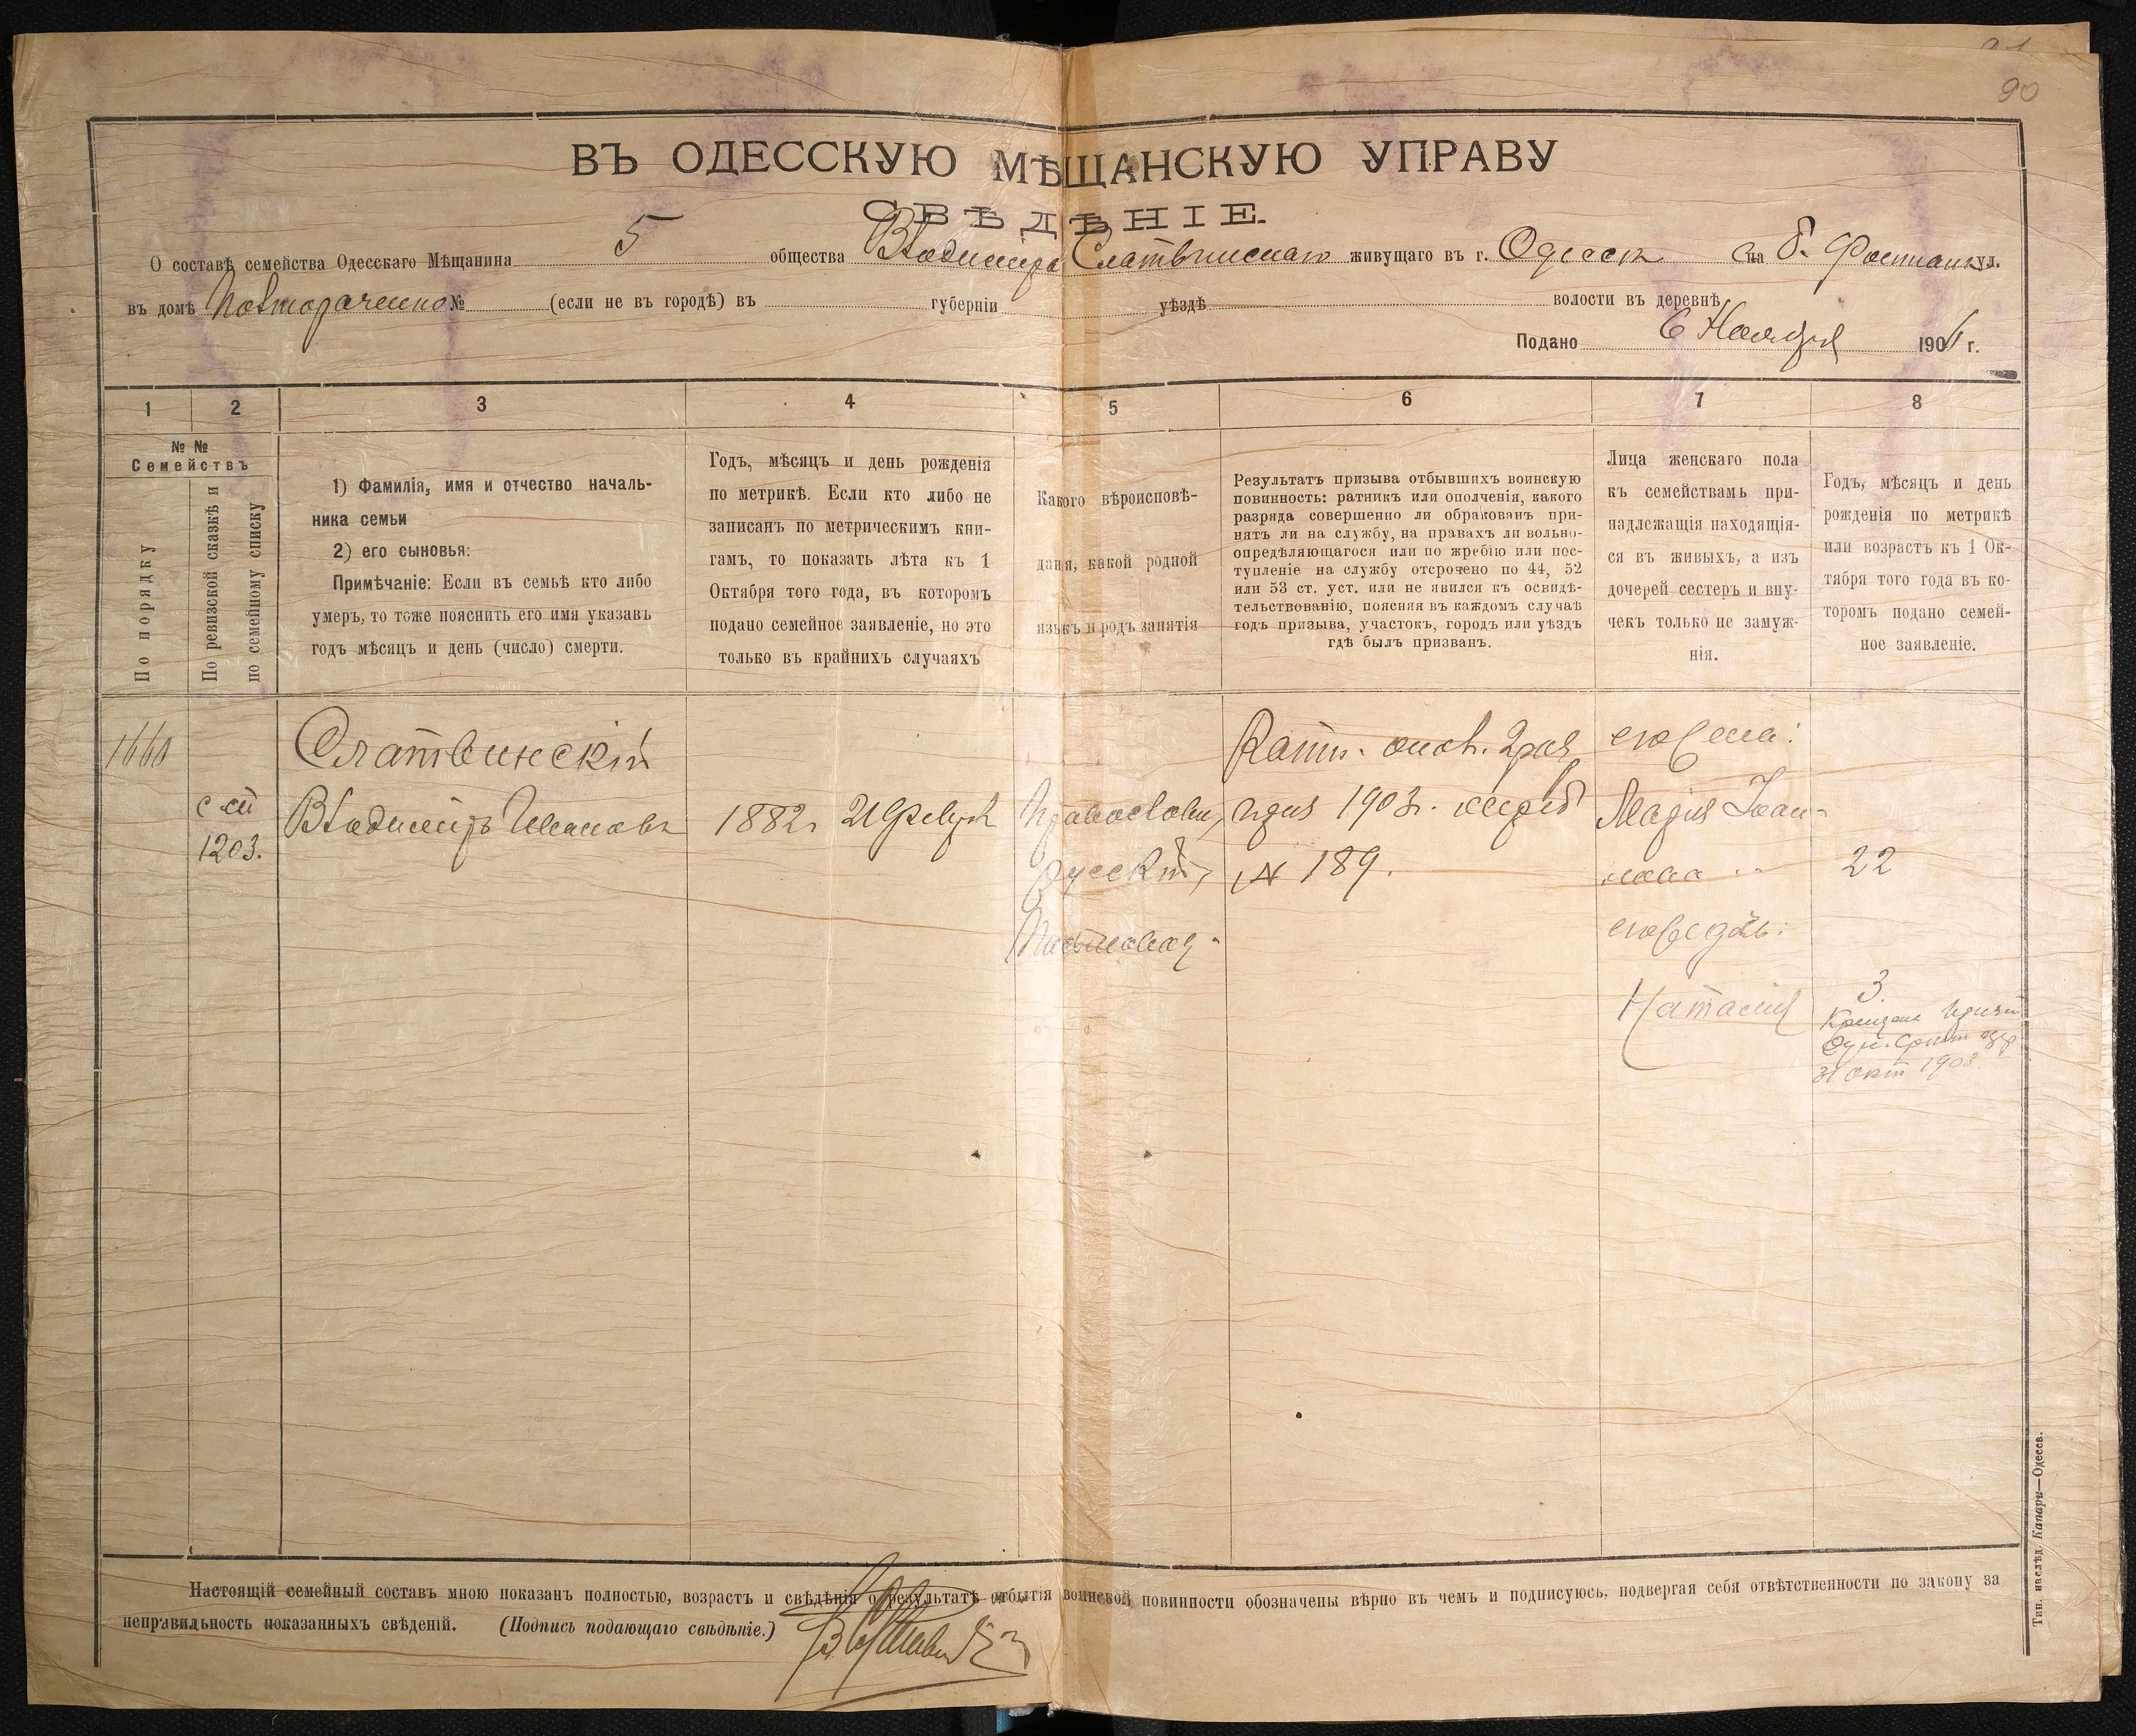 90
ВЪ ОДЕССКУЮ МѢЩАНСКУЮ УПРАВУ
СВѢДѢНІЕ.
О составѣ семейства Одесскаго Мѣщанина 5 общества Владиміра Слатвинскаго живущаго въ г. Одессѣ на Б. Фонтанѣ ул.
въ домѣ № (если не въ городѣ) въ губерніи уѣздѣ волости въ деревнѣ
Подано 6 Ноября 190 г.
1 2 3 4 5 6 7 8
№ №
Семействъ
По порядку
По ревизской сказкѣ и
по семейному списку
1) Фамилія, имя и отчество началь-
ника семьи
2) его сыновья:
Примѣчаніе: Если въ семьѣ кто либо
умеръ, то тоже пояснить его имя указавъ
годъ мѣсяцъ и день (число) смерти.
Годъ, мѣсяцъ и день рожденія
по метрикѣ. Если кто либо не
записанъ по метрическимъ кни-
гамъ, то показать лѣта къ 1
Октября того года, въ которомъ
подано семейное заявленіе, но это
только въ крайнихъ случаяхъ
Какого вѣроисповѣ-
данія, какой родной
языкъ и родъ занятія
Результатъ призыва отбывшихъ воинскую
повинность: ратникъ или ополченія, какого
разряда совершенно ли обракованъ при-
нятъ ли на службу, на правахъ ли вольно-
опредѣляющагося или по жребію или пос-
тупленіе на службу отсрочено по 44, 52
или 53 ст. уст. или не явился къ освидѣ-
тельствованію, поясняя въ каждомъ случаѣ
годъ призыва, участокъ, городъ или уѣздъ
гдѣ былъ призванъ.
Лица женскаго пола
къ семействамъ при-
надлежащія находящія-
ся въ живыхъ, а изъ
дочерей сестеръ и вну-
чекъ только не замуж-
нія.
Годъ, мѣсяцъ и день
рожденія по метрикѣ
или возрастъ къ 1 Ок-
тября того года въ ко-
торомъ подано семей-
ное заявленіе.
1660
с сп
1203.
Слатвинскій
Владиміръ Ивановъ
1882 г 21 Февр
Православн,
русскій,
Ратн. опол. 2 раз
приз 1903 г. жереб
№ 189.
его жена:
Марія Іоан-
нова
22
его дочь:
Наталія
3.
31 окт 1903
Настоящій семейный составъ мною показанъ полностью, возрастъ и свѣдѣнія о результатѣ отбытія воинской повинности обозначены вѣрно въ чемъ и подписуюсь, подвергая себя отвѣтственности по закону за
неправильность показанныхъ свѣденій. (Подпись подающаго свѣдѣніе.)
Тип. наслѣд. Капари—Одесса.